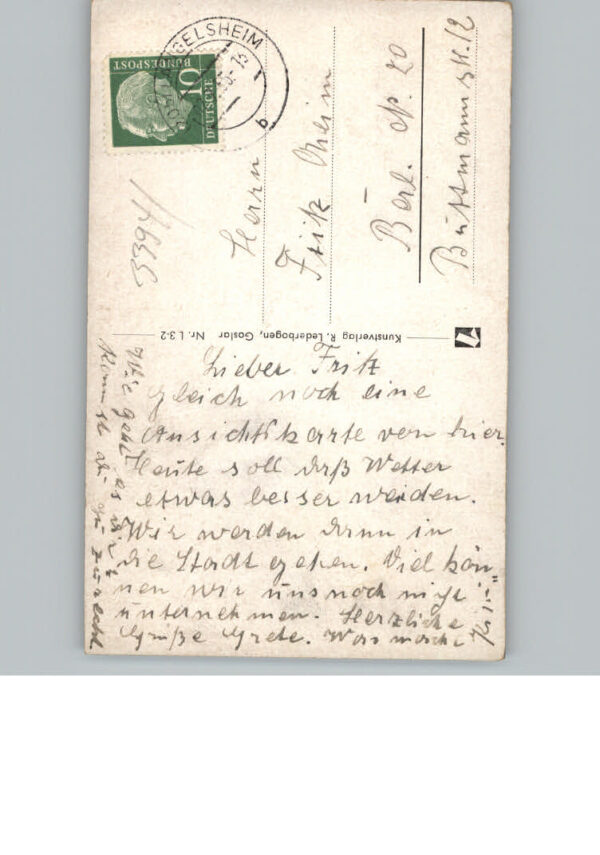 LANGELSHEIM
b
DEUTSCHE
BUNDESPOST
10
Herrn
Fritz
Berl. 20
Büttmannstr. 12
3394/
Kunstverlag R. Lederbogen, Goslar Nr. L 3-2
Lieber Fritz
gleich noch eine
Ansichtskarte von hier.
Heute soll daß Wetter
etwas besser werden.
Wir werden dann in
die Stadt gehen. Viel kön-
nen wir uns noch nicht
unternehmen. Herzliche
Grüße Grete. Was macht
Wie geht es dir?
Kommst du zurecht